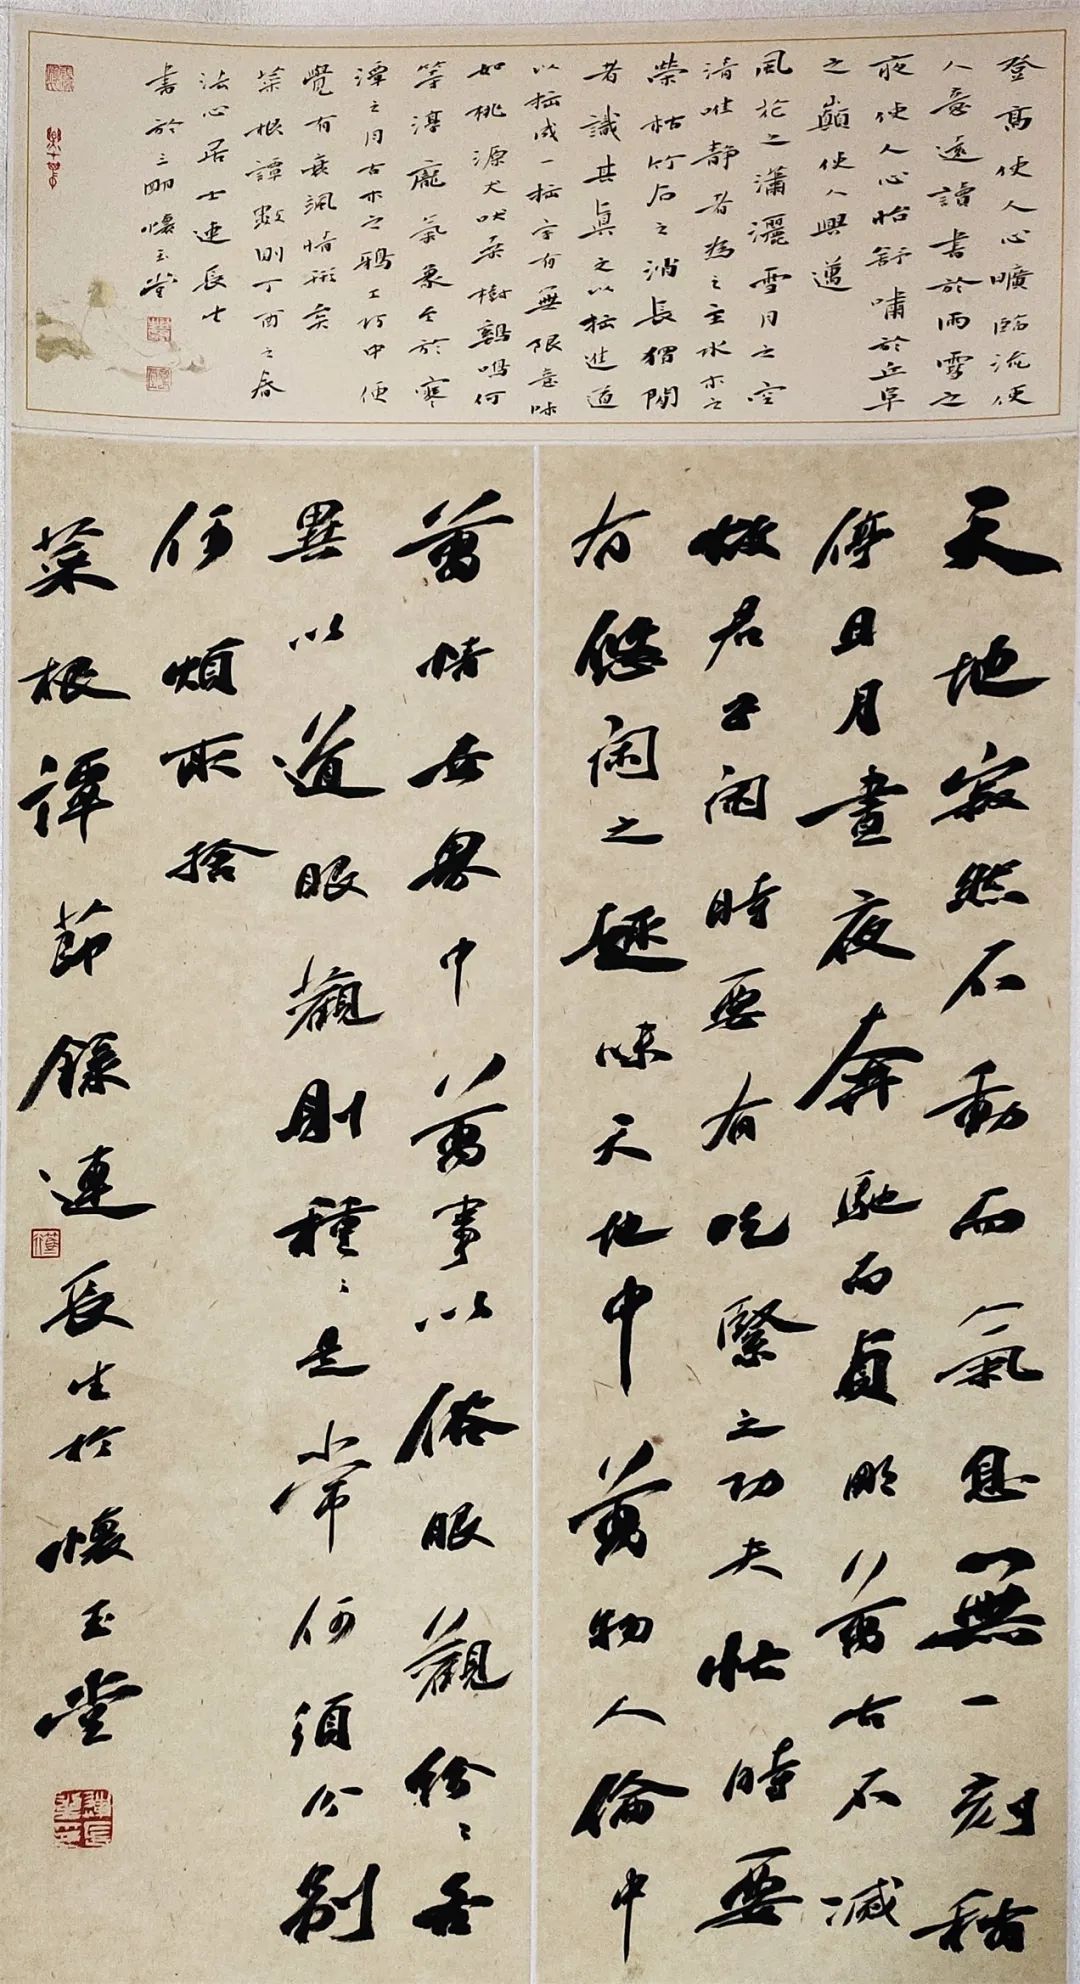 登高使人心曠臨流使
人意遠讀書於雨雪之
夜使人心怡舒嘯於丘阜
之巔使人興邁
風花之瀟灑雪月之空
清唯靜者為之主水木之
榮枯竹石之消長獨閒
者識其真文以拙進道
以拙成一拙字有無限意味
如桃源犬吠桑樹鷄鳴何
等淳龐氣象至於寒
潭之月古木之鴉工巧中便
覺有衰颯情形矣
菜根譚數則丁酉之春
法心居士連長生
書於三明懷玉堂
天地寂然不動而氣息無一刻稍
停日月晝夜奔馳而貞明萬古不減
故君子閑時要有吃緊之功夫忙時要
有悠閑之趣味天地中萬物人倫中
萬情世界中萬事以俗眼觀紛〻各
異以道眼觀則種〻是常何須分別
何煩取捨
菜根譚節錄連長生於懷玉堂